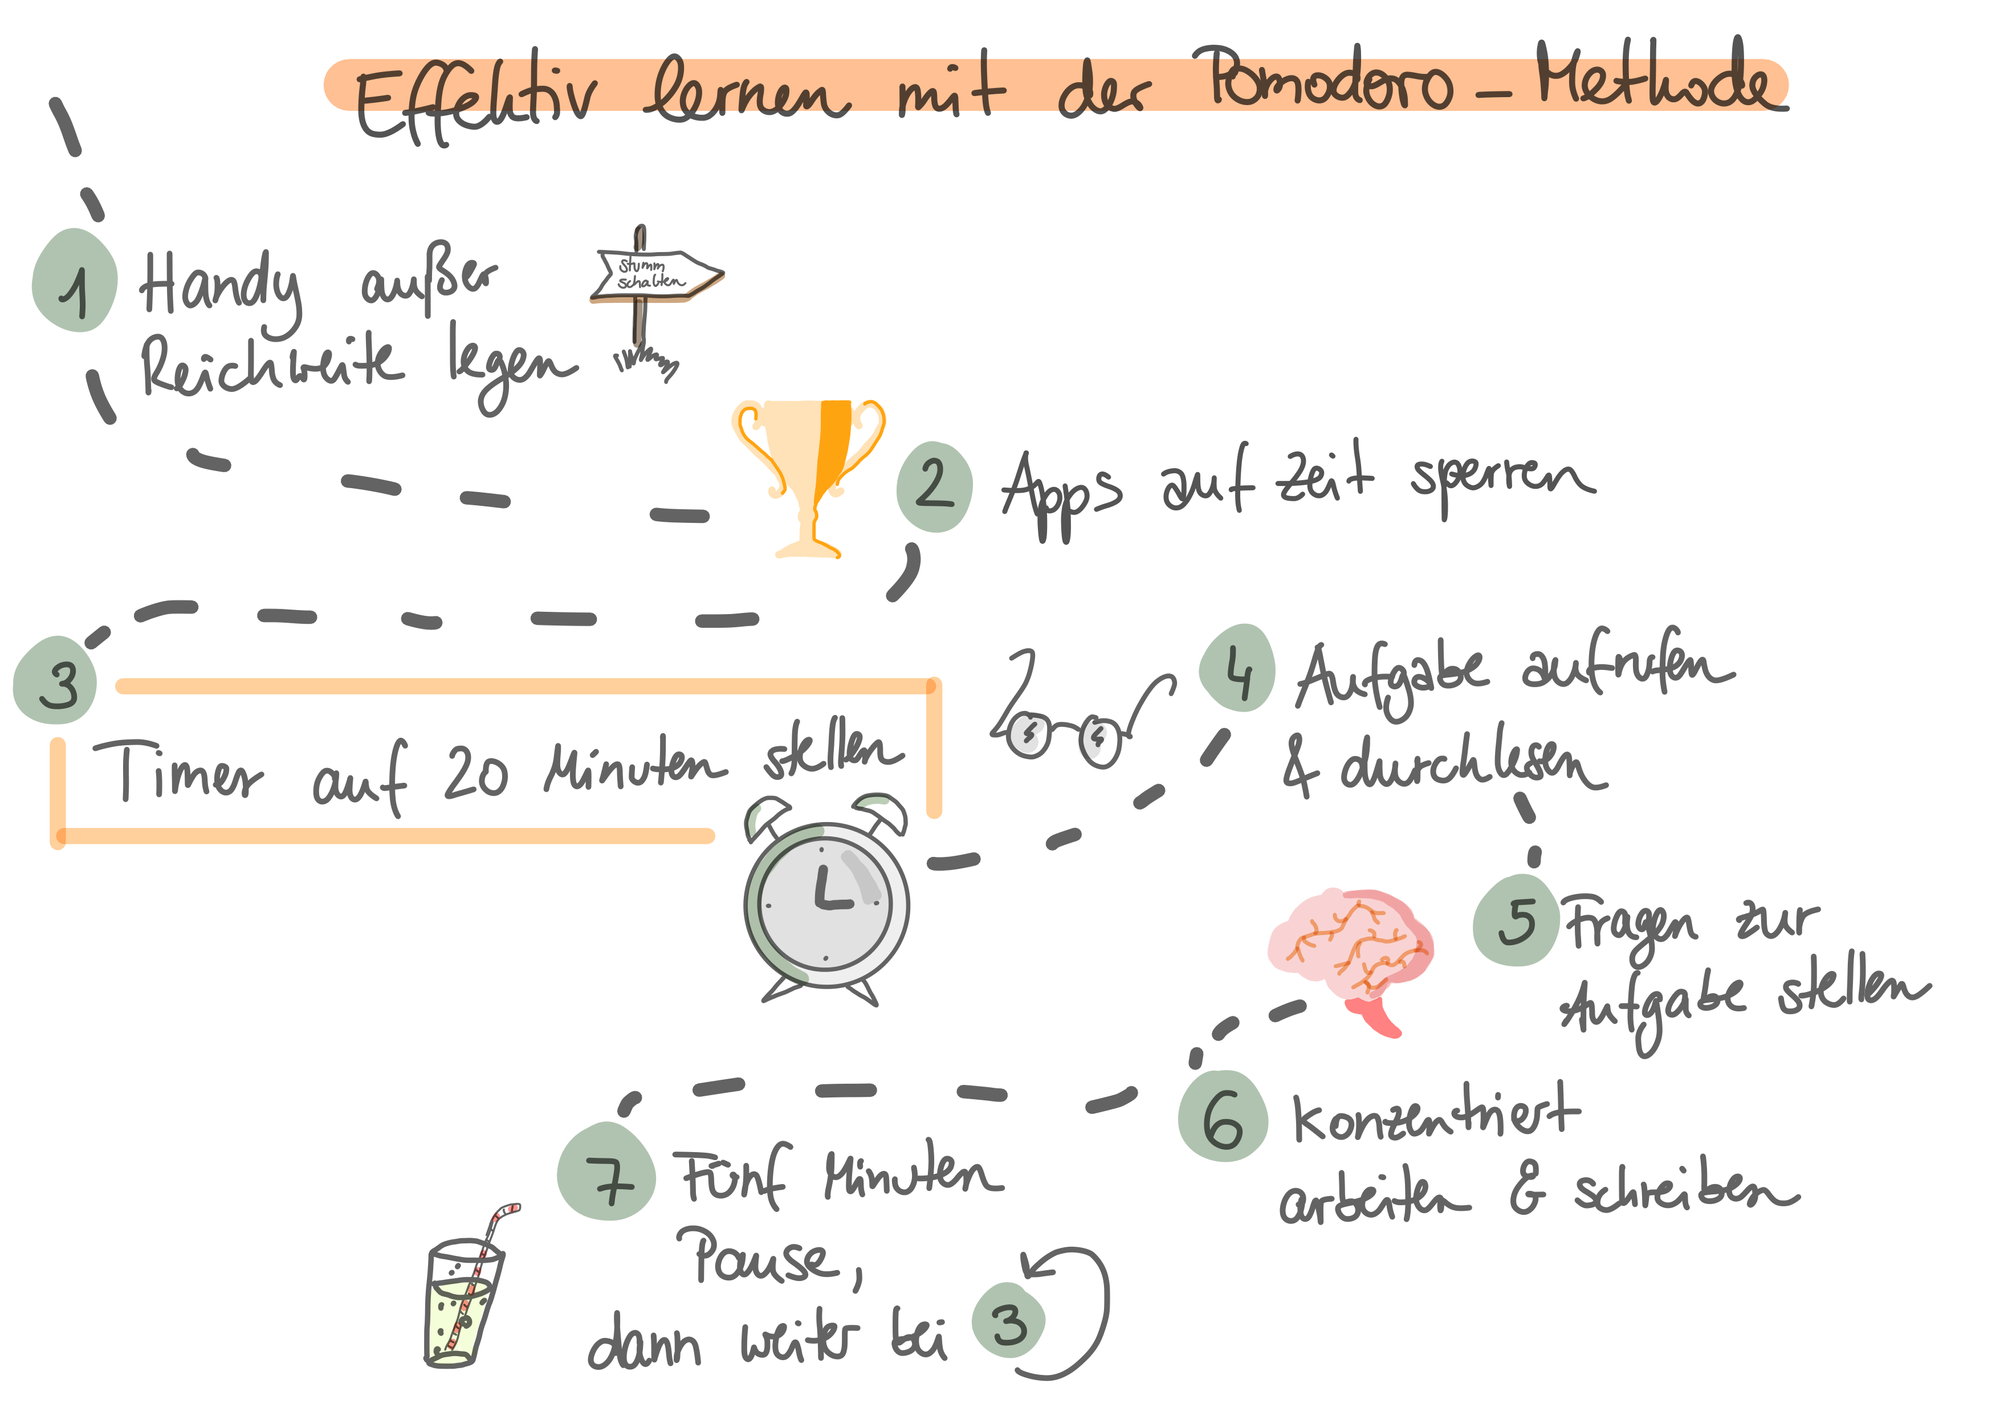 Effektiv lernen mit der Pomodoro-Methode
1 Handy außer
Reichweite legen
stumm
schalten
2 Apps auf Zeit sperren
3
Timer auf 20 Minuten stellen
4 Aufgabe aufrufen
& durchlesen
5 Fragen zur
Aufgabe stellen
6 Konzentriert
arbeiten & schreiben
7 Fünf Minuten
Pause,
dann weiter bei 3